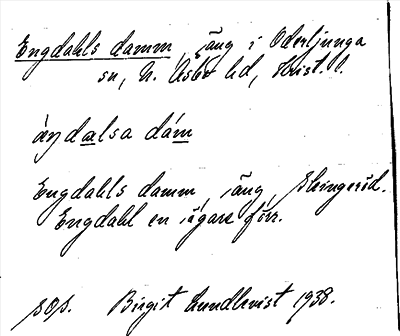 Engdahls damm, äng i Oderljunga
sn, N. Åsbo hd, Krist. l.
äŋdalsa dám
Engdahls damm, äng, Skingeröd.
Engdahl en ägare förr.
sOs. Birgit Lundkvist 1938.